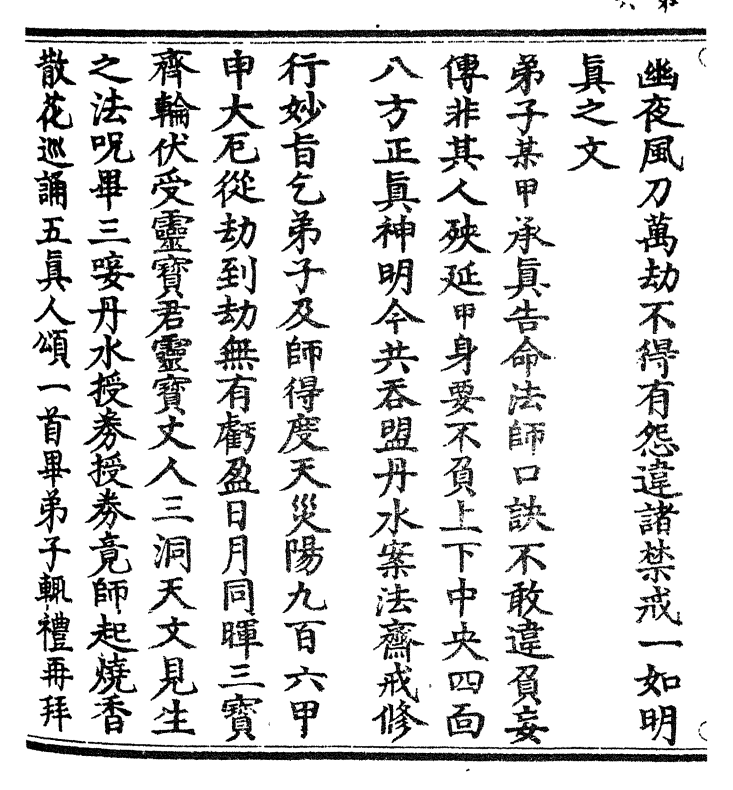 幽夜風刀萬劫不得有怨違諸禁戒一如明
眞之文
弟子某甲承眞告命法師口訣不敢違負妄
傳非其人殃延甲身要不負上下中央四面
八方正眞神明今共吞盟丹水案法齋戒修
行妙旨乞弟子及師得度天災陽九百六甲
申大厄從劫到劫無有虧盈日月同暉三寶
齊輪伏受靈寶君靈寶丈人三洞天文見生
之法呪畢三唼丹水授券授券竟師起燒香
散花巡誦五眞人頌一首畢弟子輙禮再拜